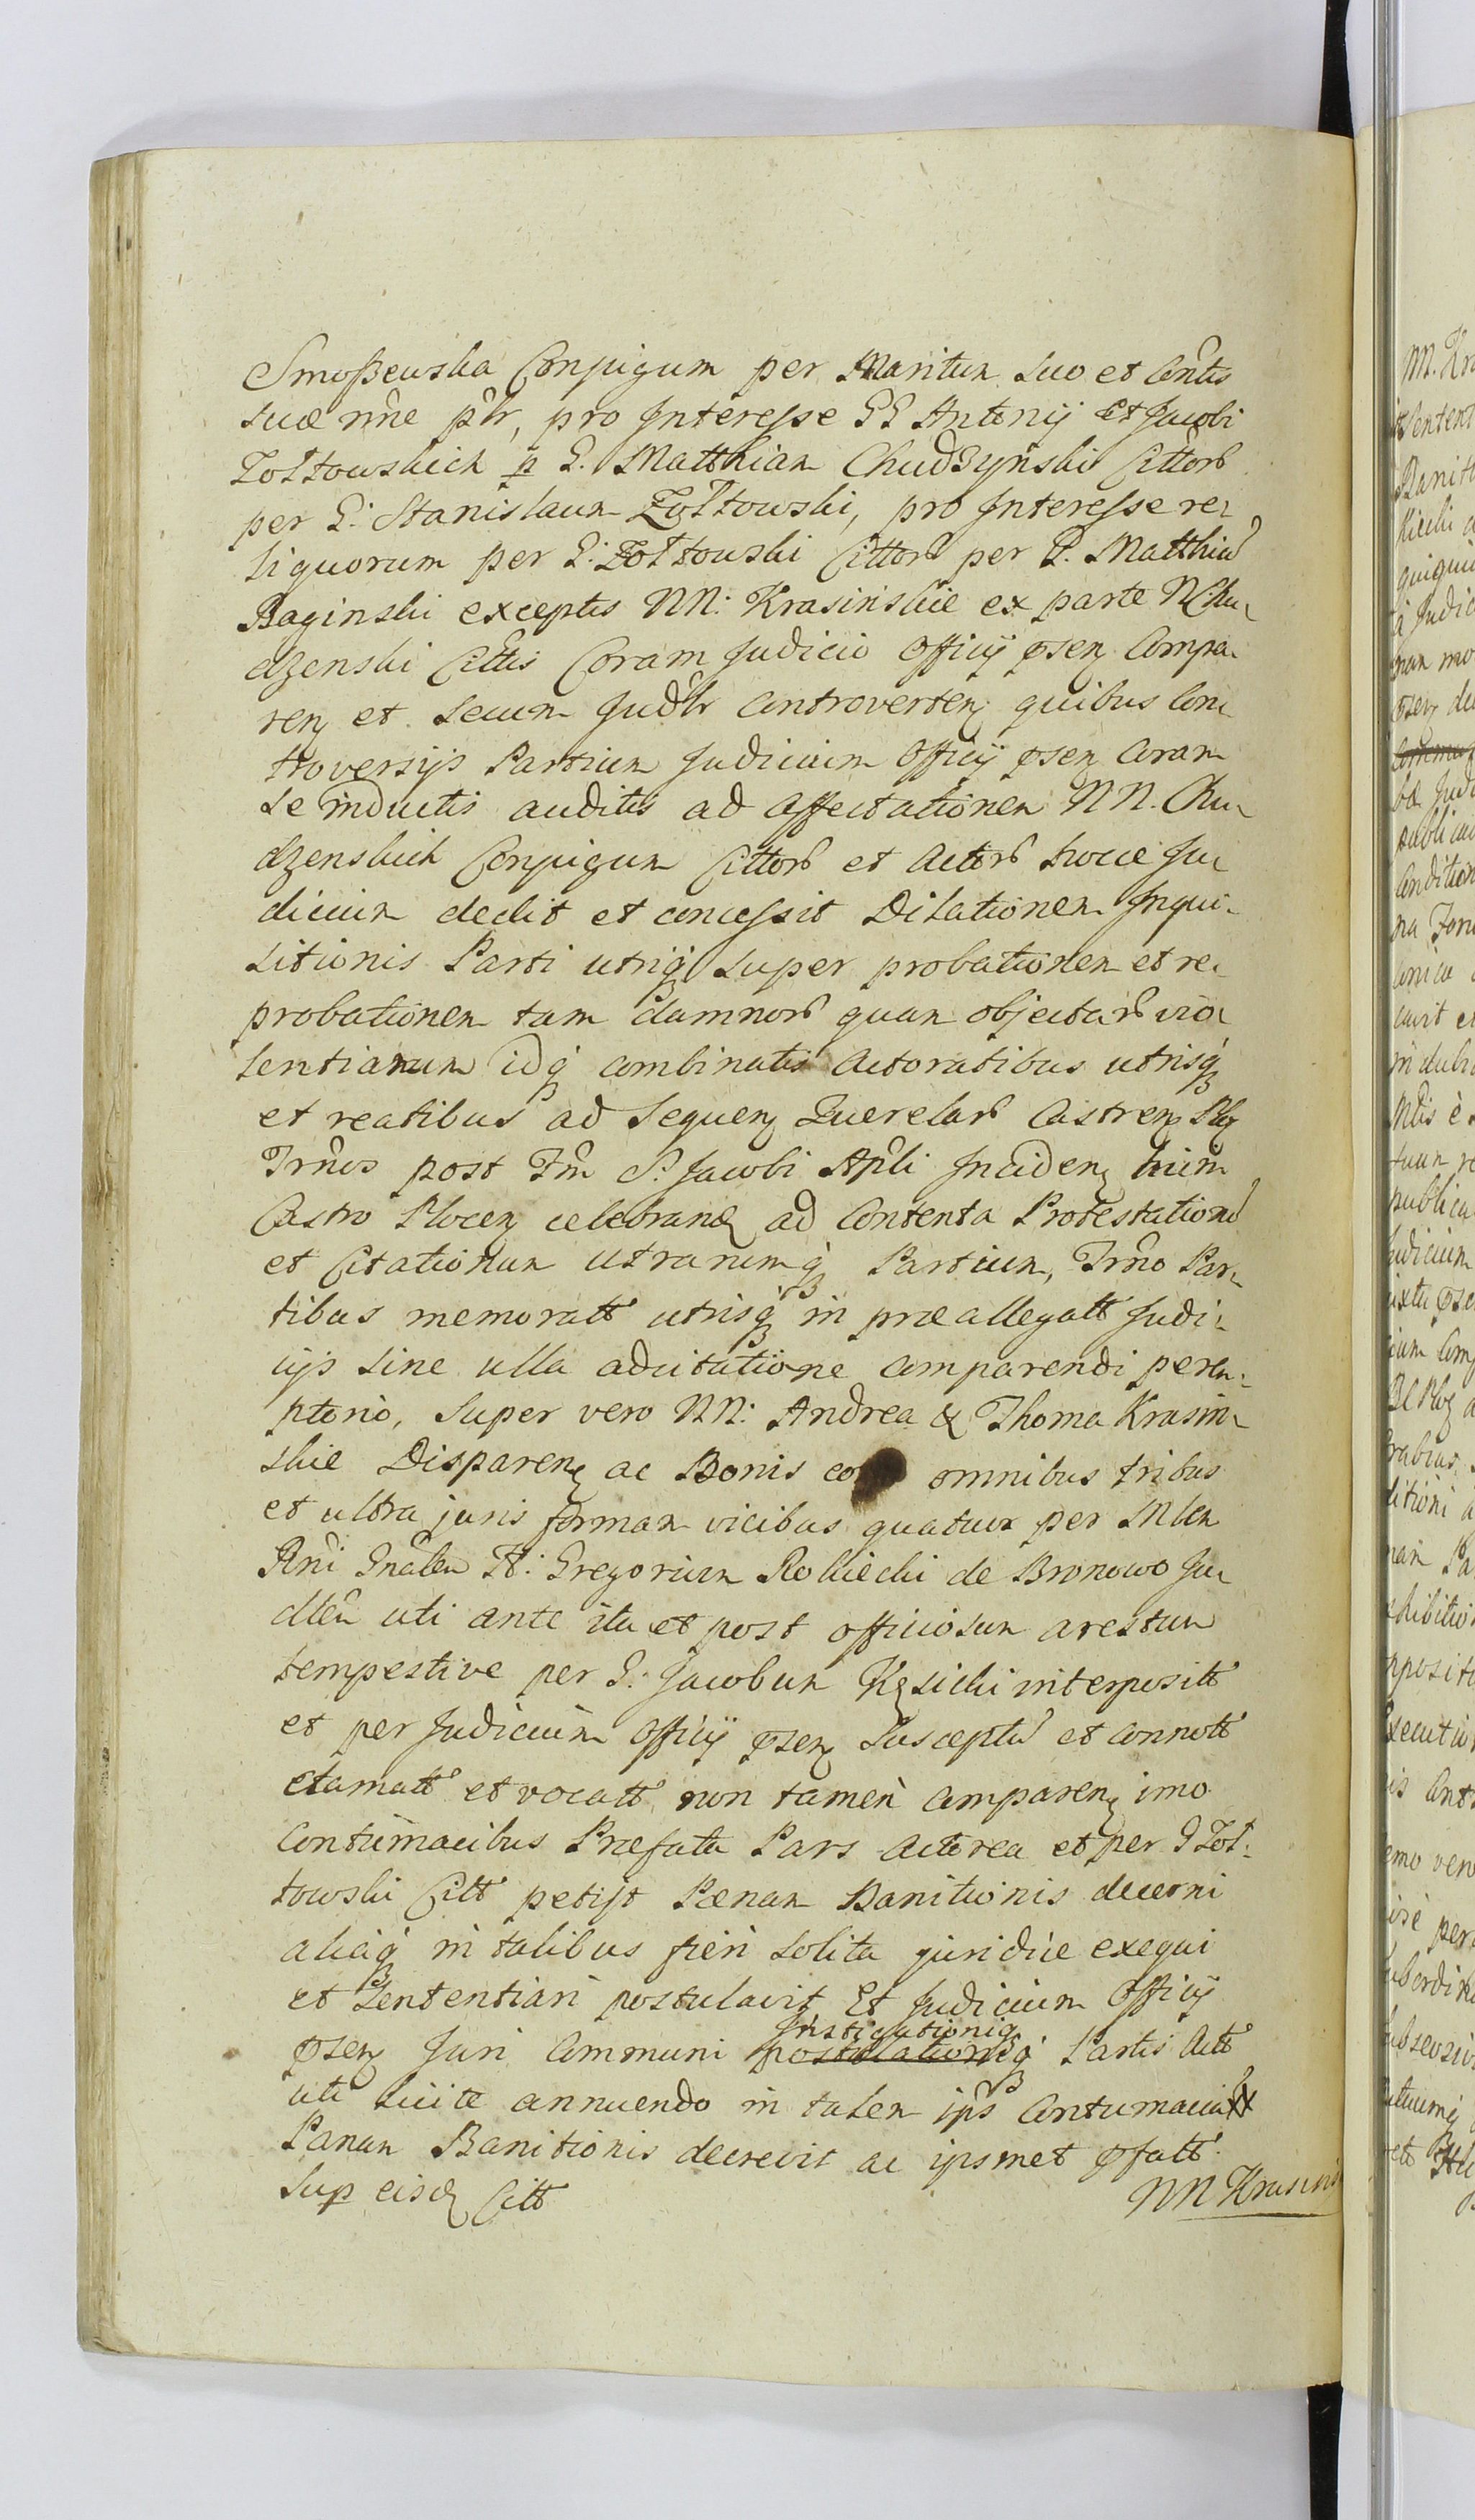 Smoßewska Conjugum per Maritum suo et Contis
suæ nñe pñr, pro Interesse GG Antonij et Jacobi
Zołtowskich p G. Matthiam Chudzynski Cittorũ
per G: Stanislaum Zołtowski, pro Interesse re-
liquorum per G: Zołtowski Cittorũ per G. Matthiã
Baginski exceptis NN: Krasinskie ex parte N Chu-
dzenski Cittis Coram Judicio Officij psen Compa-
ren et secum Judr controverten quibus Con-
troversijs Partium Judicium Officij psen Coram
se inductis auditis ad affectationem NN. Chu-
dzenskich Conjugum Cittorũ et Actorũ hocce Ju-
dicium dedit et concessit Dilationem Inqui-
sitionis Parti utriq super probationem et re-
probationem tam damnorũ quam objectarũ vio-
lentiarum idq combinatis actoratibus utrisq
et reatibus ad Sequen Querelarũ Castren Plo
Trños post Fm S. Jacobi Apli Inciden hicin
Castro Plocen celebrand ad Contenta Protestationũ
et Citationum utrarumq Partium, Trño Par-
tibus memoratt utrisq in præallegatt Judi-
cijs sine ulla adcitatione comparendi perem-
ptorio, super vero NN: Andrea & Thoma Krasin-
skie Disparen ac Bonis omnibus tribus
et ultra juris formam vicibus quatuor per Mlem
Rni Gnalem H: Gregorium Rokicki de Bronowo Ju-
dltem uti ante ita et post officiosum arestum
tempestive per G: Jacobum Kęsicki interpositt
et per Judicium Officij psen susceptũ et connott
clamatt et vocatt non tamen comparen imo
Contumacibus Præfata Pars Actorea et per G Zoł-
towski Citt petijt Pænam Banitionis decerni
aliaq in talibus fieri solita juridice exequi
et Sententiari postulavit Et Judicium Officij
psen Juri Communi postulationiq Instigationiq Partis Act
uti licite annuendo in talem ips Contumaciã
Pænam Banitionis decrevit ac ipsmet pfatt
NN Krasins
Sup eisd Citt